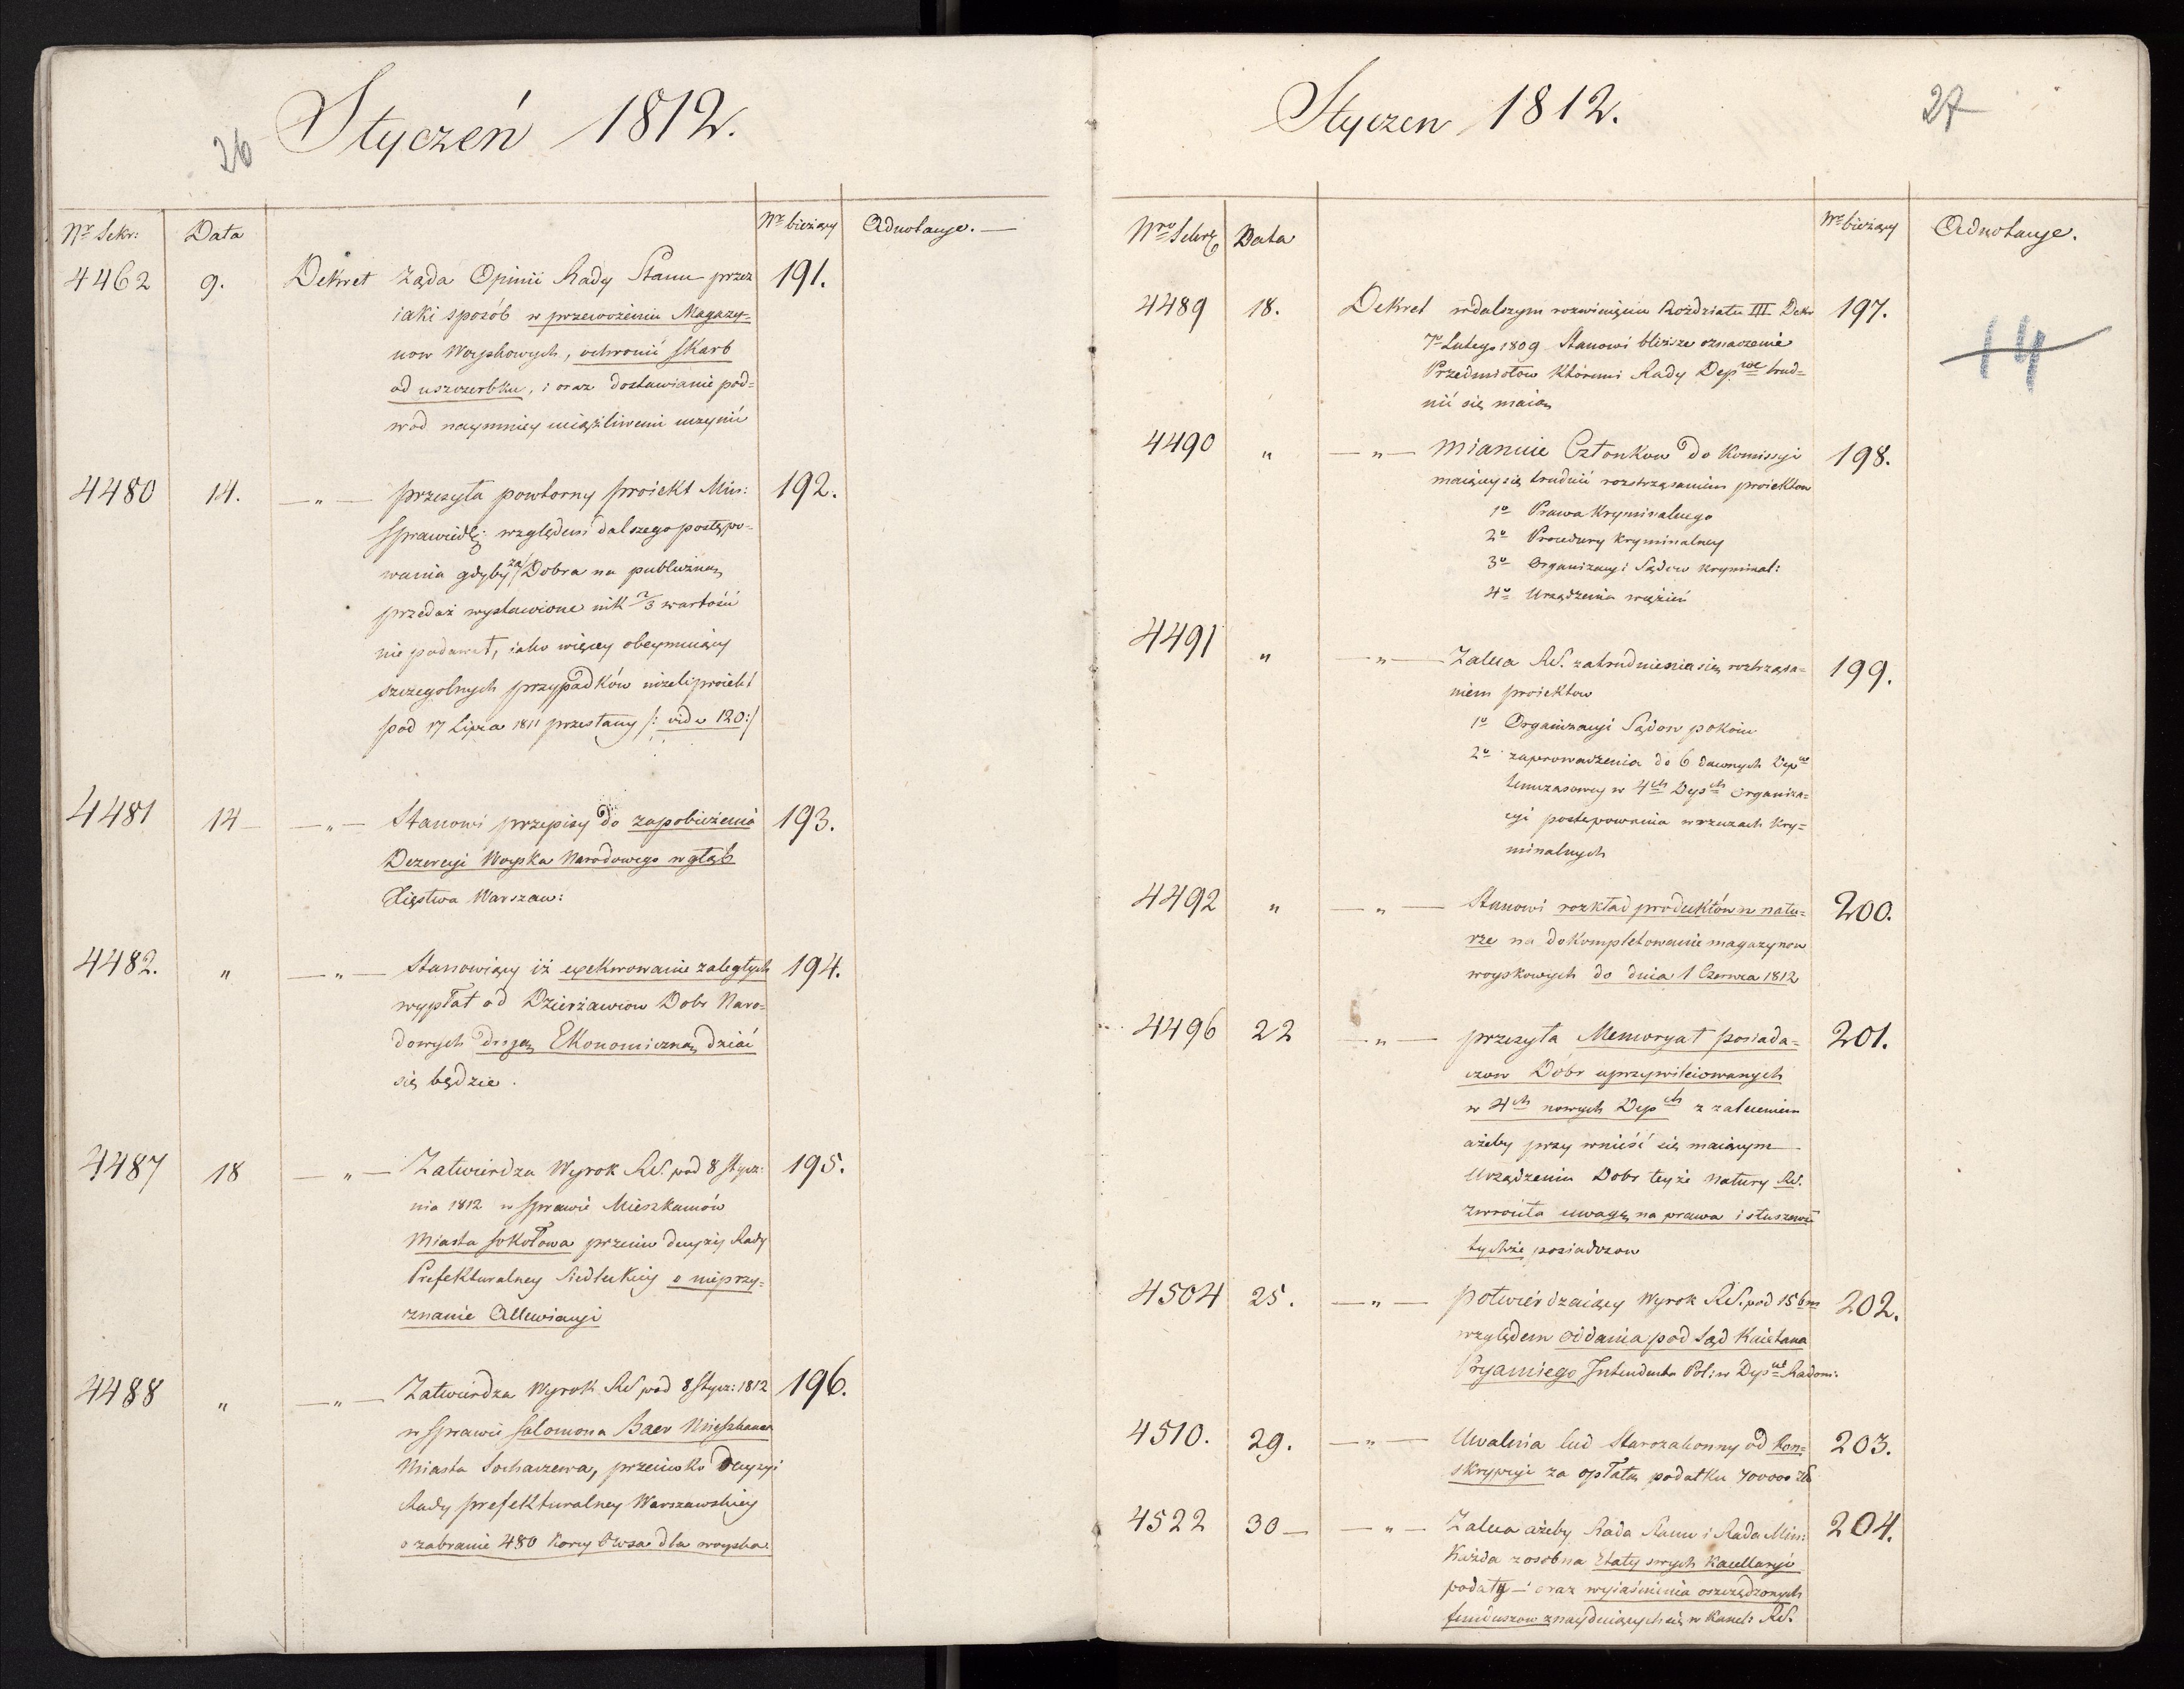 26
Styczeń 1812.
Nr. Sekr: Data Nr bieżący Adnotacye. —
4462 9. Dekret żąda Opinii Rady Stanu przez 191.
iaki sposób w przewożeniu Magazy=
now Woyskowych, ochronić skarb
od uszczerbku, i oraz dostawianie pod=
wod naymniey uciążliwem uczynić
4480 14. — " — przesyła powtorny proiekt Min: 192.
Sprawiedl: względem dalszego postępo=
wania gdyby za Dobra na publiczną
przedaż wystawione nik 2/3 wartości
nie podawał, iako więcey obeymuiący
szczegolnych przypadków niżeli proiekt
pod 17 Lipca 1811 przesłany /: vide 120:/
4481 14 — — " — Stanowi przepisy do zapobieżenia 193.
Dezercyi Woyska Narodowego w głąb
Xięstwa Warszaw:
4482. " — " — Stanowiący iż exekwowanie zaległych 194.
wypłat od Dzierżawcow Dobr Naro=
dowych drogą Ekonomiczną dziać
się będzie.
4487 18 — " — Zatwierdza Wyrok RS. pod 8 Stycz: 195.
nia 1812 w Sprawie Mieszkancow
Miasta Sokołowa przeciw decyzyi Rady
Prefekturalney Siedleckiey o nieprzy=
znanie Allewiacyi
4488 " — " — Zatwierdza Wyrok RS pod 8 Stycz: 1812 196.
w Sprawie Salomona Baer Mieszkanca
Miasta Sochaczewa, przeciwko Decyzyi
Rady prefekturalney Warszawskiey
o zabranie 480 korcy Owsa dla woyska
27
Styczen 1812.
Nro Sekre Data Nr bieżący Adnotacye.
4489 18. Dekret w dalszym rozwinięciu Rozdziału III Dekr 197.
7o Lutego 1809 Stanowi bliższe oznaczenie
Przedmiotow któremi Rady Depwe trud=
nić się maią
14
4490 " — " — Mianuie Członkow do Komissyi 198.
maiącey się trudnić roztrząsaniem proiektow
1o Prawa Kryminalnego
2o Procedury kryminalney
3o Organizacyi Sądow kryminal:
4o Urządzenia więzień
4491 " — " — Zaleca RS. zatrudnienie się roztrząsa= 199.
niem proiektow
1o Organizacyi Sądow pokoiu
2o zaprowadzenia do 6 dawnych Depw
tymczasowey w 4ch Depch Organiza=
cyi postępowania w rzeczach kry=
minalnych
4492 " — " — Stanowi rozkład produktów w natu= 200.
rze na dokompletowanie magazynow
woyskowych do dnia 1 Czerwca 1812
4496 22 — " — przesyła Memoryał posiada= 201.
czow Dóbr uprzywileiowanych
w 4ch nowych Depch z zaleceniem
ażeby przy wnieść się maiącym
Urządzeniu Dobr teyże natury RS.
zwrociła uwagę na prawa i słuszność
tychże posiadaczow
4504 25. — " — potwierdzaiący Wyrok RS. pod 15 bm 202.
względem oddania pod Sąd Kaietana
Pryamiego Intendenta Pol: w Depcie Radom:
4510. 29. — " — Uwalnia lud Starozakonny od kon= 203.
skrypcyi za opłatą podatku 700000 zł
4522 30 — — " — Zaleca ażeby Rada Stanu i Rada Min: 204.
każda z osobna Etaty swych Kancellaryi
podały i oraz wyiaśnienia oszczędzonych
funduszow znayduiących się w Kancel: RS.